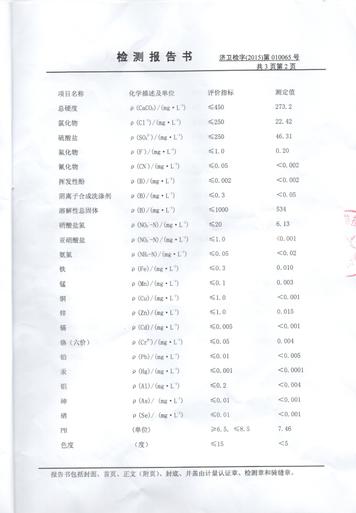 检测报告书
济卫检字(2015)第 010065 号
共 3 页第 2 页
项目名称 化学描述及单位 评价指标 测定值
总硬度 ρ(CaCO₃)/(mg·L⁻¹) ≤450 273.2
氯化物 ρ(Cl⁻)/(mg·L⁻¹) ≤250 22.42
硫酸盐 ρ(SO₄²⁻)/(mg·L⁻¹) ≤250 46.31
氟化物 ρ(F⁻)/(mg·L⁻¹) ≤1.0 0.20
氰化物 ρ(CN⁻)/(mg·L⁻¹) ≤0.05 <0.002
挥发性酚 ρ(B)/(mg·L⁻¹) ≤0.002 <0.002
阴离子合成洗涤剂 ρ(B)/(mg·L⁻¹) ≤0.3 <0.05
溶解性总固体 ρ(B)/(mg·L⁻¹) ≤1000 534
硝酸盐氮 ρ(NO₃⁻-N)/(mg·L⁻¹) ≤20 6.13
亚硝酸盐 ρ(NO₂⁻-N)/(mg·L⁻¹) ≤1.0 <0.001
氨氮 ρ(NH₃-N)/(mg·L⁻¹) ≤0.05 <0.02
铁 ρ(Fe)/(mg·L⁻¹) ≤0.3 0.010
锰 ρ(Mn)/(mg·L⁻¹) ≤0.1 0.003
铜 ρ(Cu)/(mg·L⁻¹) ≤1.0 <0.001
锌 ρ(Zn)/(mg·L⁻¹) ≤1.0 0.015
镉 ρ(Cd)/(mg·L⁻¹) ≤0.005 <0.001
铬（六价） ρ(Cr⁶⁺)/(mg·L⁻¹) ≤0.05 0.004
铅 ρ(Pb)/(mg·L⁻¹) ≤0.01 <0.005
汞 ρ(Hg)/(mg·L⁻¹) ≤0.001 <0.0001
铝 ρ(Al)/(mg·L⁻¹) ≤0.2 <0.004
砷 ρ(As)/(mg·L⁻¹) ≤0.01 <0.001
硒 ρ(Se)/(mg·L⁻¹) ≤0.01 <0.001
PH (单位) ≥6.5, ≤8.5 7.46
色度 （度） ≤15 <5
报告书包括封面、首页、正文（附页）、封底、并盖由计量认证章、检测章和骑缝章。